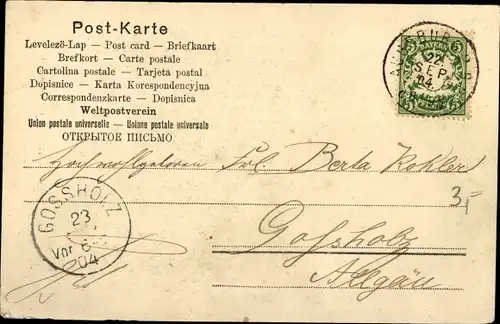 Post-Karte
Levelező-Lap — Post card — Briefkaart
Brefkort — Carte postale
Cartolina postale — Tarjeta postal
Dopisnice — Karta Korespondencyjna
Correspondenzkarte — Dopisnica
Weltpostverein
Union postale universelle — Unione postale universale
ОТКРЫТОЕ ПИСЬМО
BAYERN
5 5
22
SEP.
04.
Hochwohlgeboren Frl. Berta Kohler
3,-
GOSSHOLZ
23
Vor 6
04
Goßholz
Allgäu